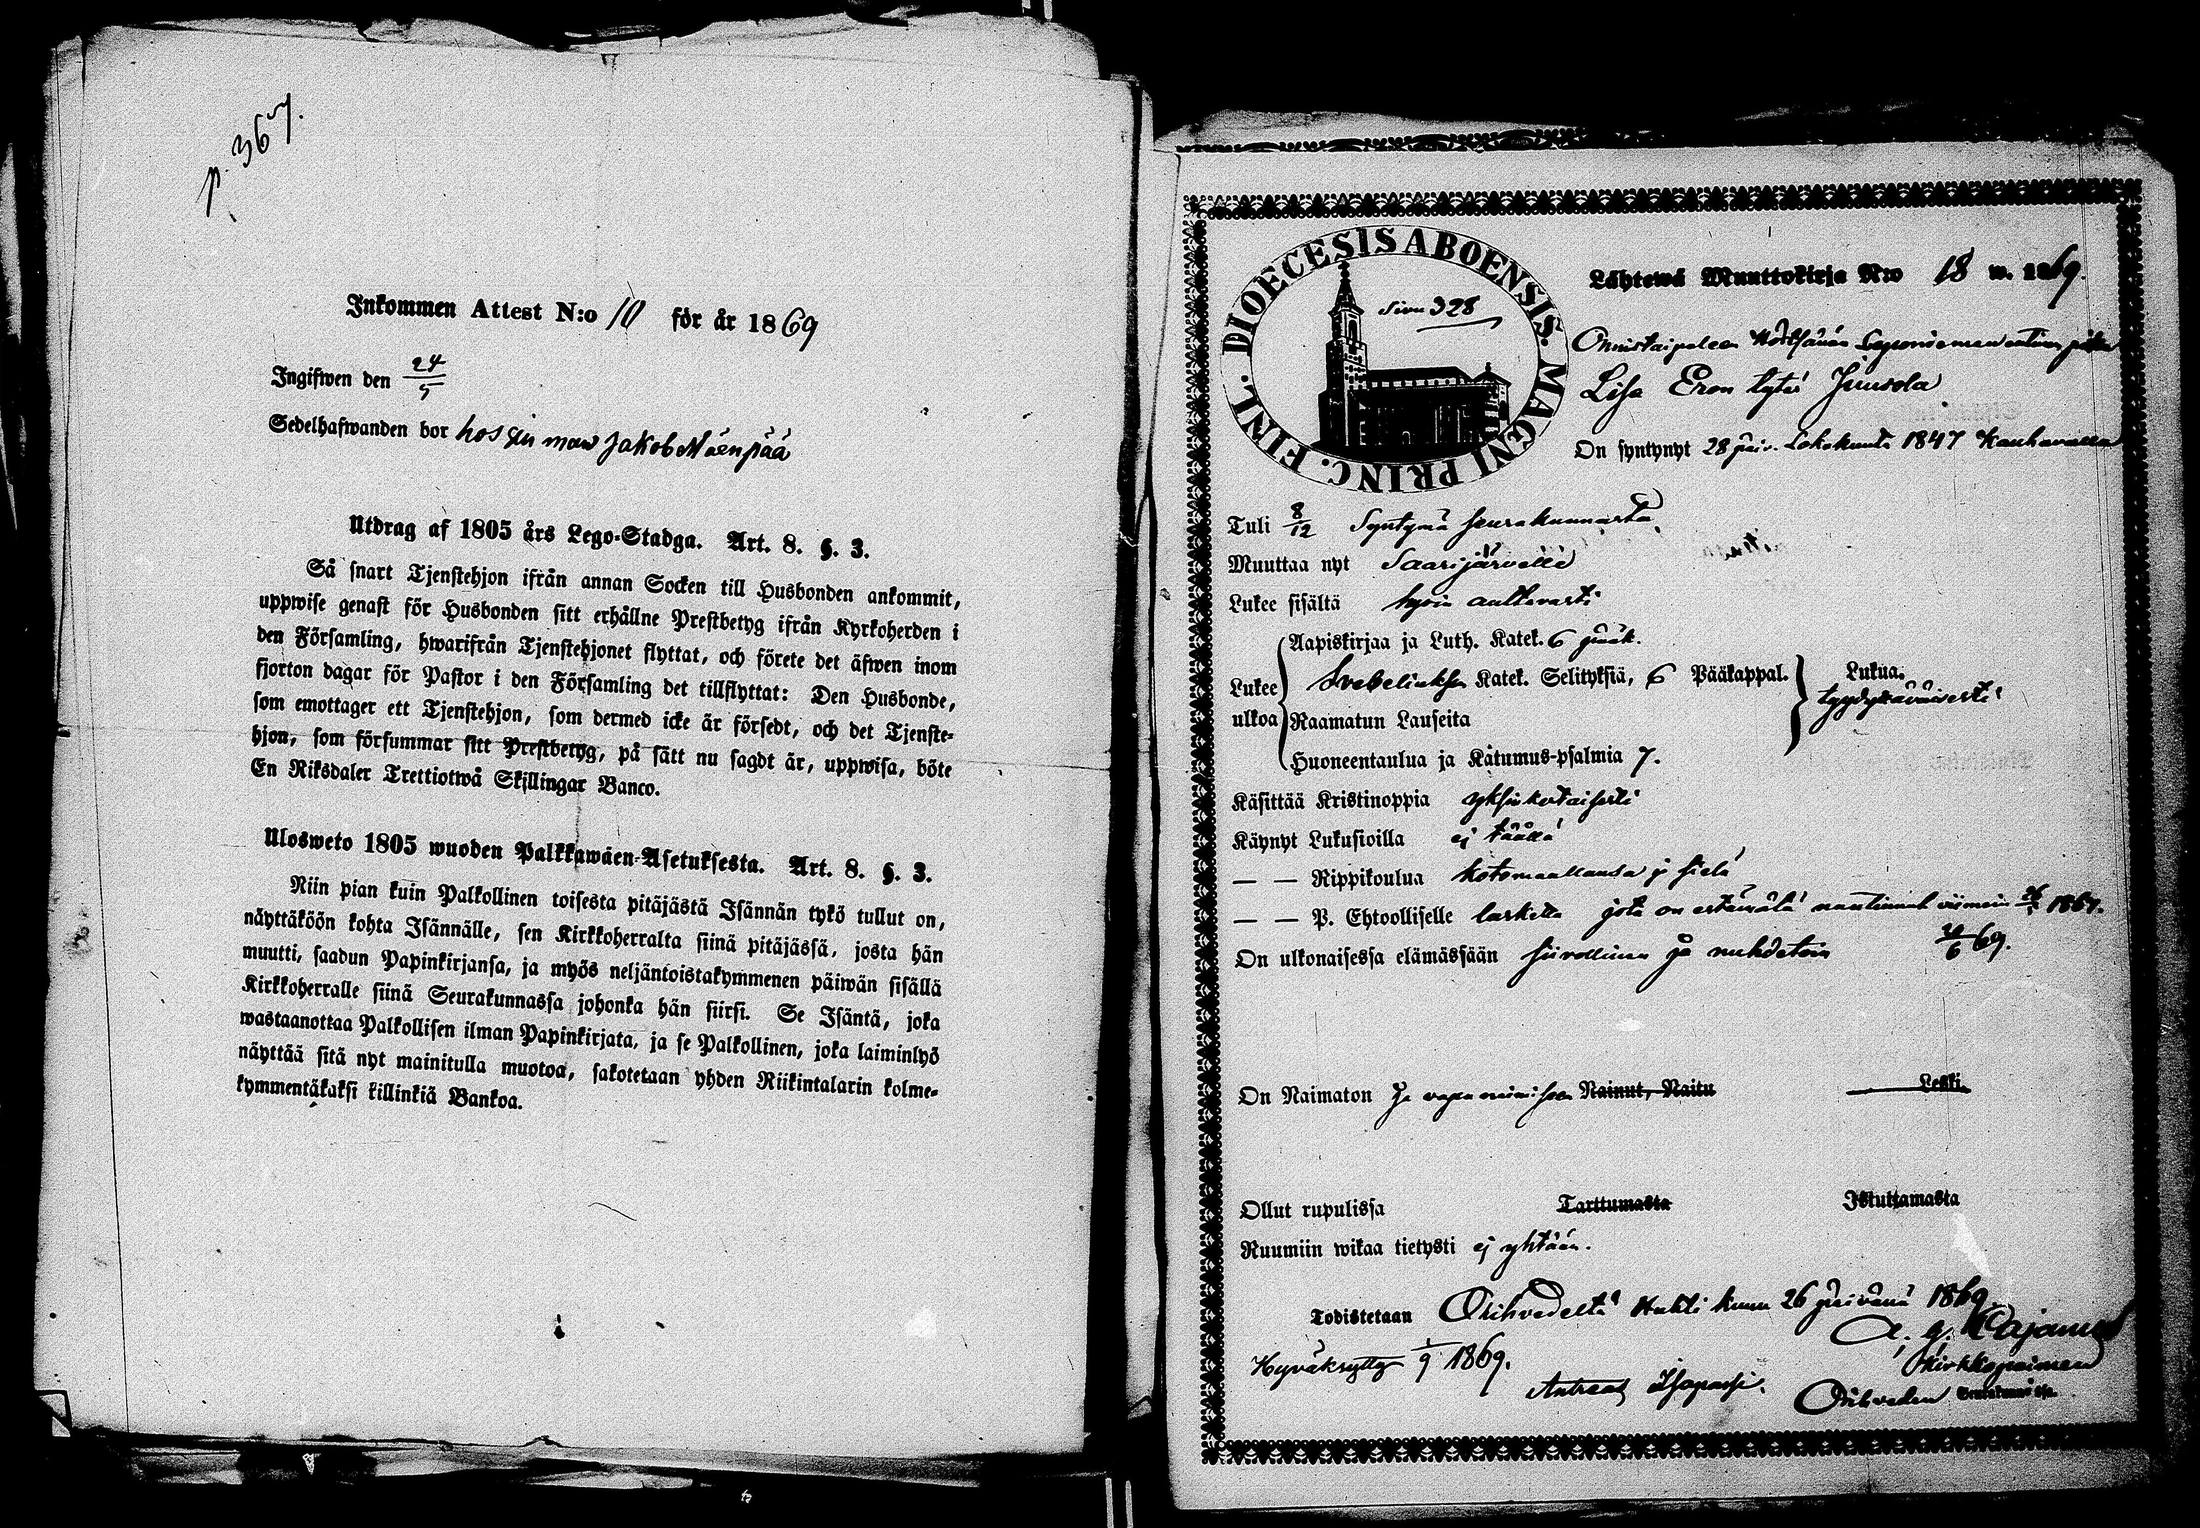 p. 367.
Inkommen Attest N:o 10 för år 1869
Ingifwen den 24/5
Sedelhafwanden bor hos sin mor Jakob Mäenpää
Utdrag af 1805 års Lego-Stadga. Art. 8. §. 3.
Så snart Tjenstehjon ifrån annan Socken till Husbonden ankommit,
uppwise genast för Husbonden sitt erhållne Prestbetyg ifrån Kyrkoherden i
den Församling, hwarifrån Tjenstehjonet flyttat, och förete det äfwen inom
fjorton dagar för Pastor i den Församling det tillflyttat: Den Husbonde,
som emottager ett Tjenstehjon, som dermed icke är försedt, och det Tjenste-
hjon, som försummar sitt Prestbetyg, på sätt nu sagdt är, uppwisa, böte
En Riksdaler Trettiotwå Skillingar Banco.
Ulosweto 1805 wuoden Palkkawäen-Asetuksesta. Art. 8. §. 3.
Niin pian kuin Palkollinen toisesta pitäjästä Isännän tykö tullut on,
näyttäköön kohta Isännälle, sen Kirkkoherralta siinä pitäjässä, josta hän
muutti, saadun Papinkirjansa, ja myös neljäntoistakymmenen päiwän sisällä
Kirkkoherralle siinä Seurakunnassa johonka hän siirsi. Se Isäntä, joka
wastaanottaa Palkollisen ilman Papinkirjata, ja se Palkollinen, joka laiminlyö
näyttää sitä nyt mainitulla muotoa, sakotetaan yhden Riikintalarin kolme-
kymmentäkaksi killinkiä Bankoa.
DIOECESIS ABOENSIS. MAGNI PRINC. FINL.
Sivu 328
Lähtewä Muuttokirja N:o 18 w. 1869.
Onnistaipaleen
Lisa Eron tytär Juusola
On syntynyt 28 päiv. Lokakuuta 1847 Kauhavalla
Tuli 8/12 Syntymä seurakunnasta.
Muuttaa nyt Saarijärvelle
Lukee sisältä hyvin auttavasti
Aapiskirjaa ja Luth. Katek. 6 pääk.
Lukee ulkoa Svebeliuksen Katek. Selityksiä, 6 Pääkappal. Lukua. tyydyttäväisesti
Raamatun Lauseita
Huoneentaulua ja Katumus-psalmia 7.
Käsittää Kristinoppia yksinkertaisesti
Käynyt Lukusioilla ej täällä
— — Rippikoulua kotomaallansa ja sielä
— — P. Ehtoolliselle laskettu jota on estämätä nautinnut viimein 1867.
On ulkonaisessa elämässään siivollinen ja nuhdetoin 20/6 69.
On Naimaton ja vapa naimiseen Nainut, Naitu Leski.
Ollut rupulissa Tarttumasta Istuttamasta
Ruumiin wikaa tietysti ej yhtään.
Todistetaan Orihvedeltä Huhti kuun 26 päivänä 1869.
A. g. Cajanus
Kirkkopaimen
Orihveden Seurakunnassa.
Hyväksytty 1/9 1869.
Antreas Isopassi.